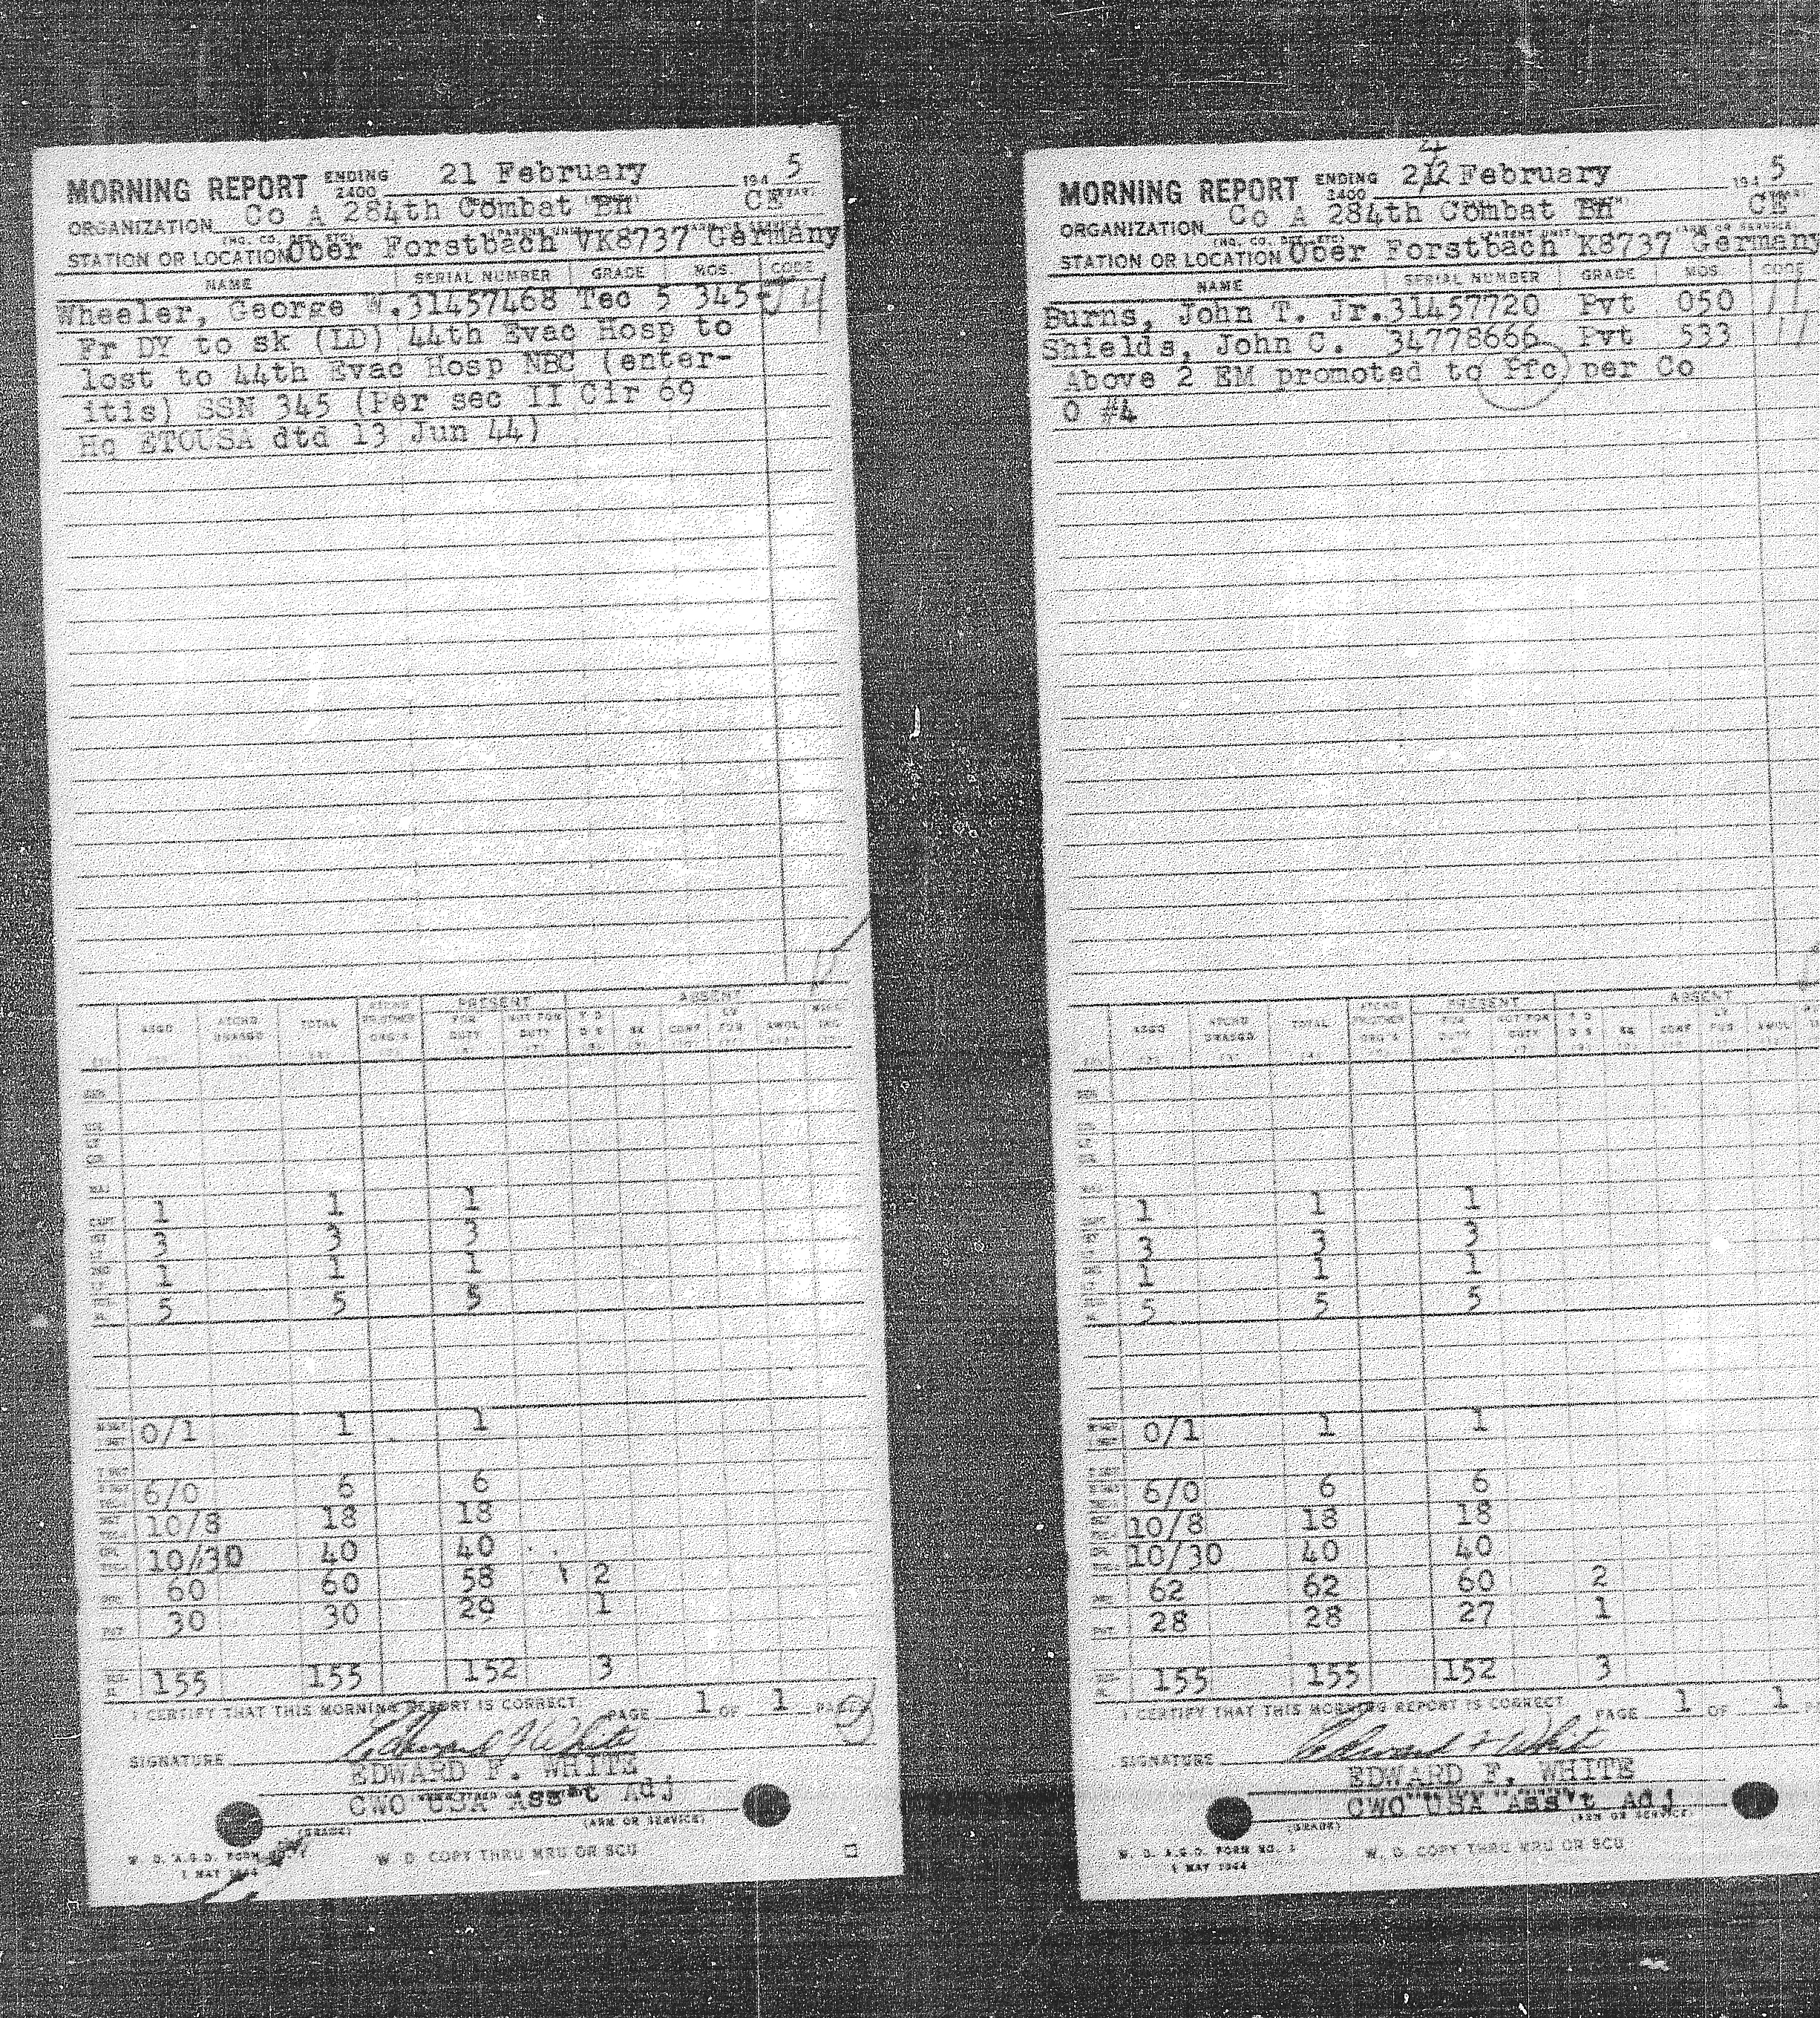 MORNING REPORT ENDING 2400 21 February 194 5
ORGANIZATION Co A 284th Combat Bn CE
STATION OR LOCATION Ober Forstbach VK8737 Germany
NAME SERIAL NUMBER GRADE MOS. CODE
Wheeler, George W. 31457468 Tec 5 345
Fr DY to sk (LD) 44th Evac Hosp to
lost to 44th Evac Hosp NBC (enter-
itis) SSN 345 (Per sec II Cir 69
Hq ETOUSA dtd 13 Jun 44)
PRESENT ABSENT
ASGD ATCHD UNASGD TOTAL FOR DUTY NOT FOR DUTY SK CONF AWOL
1 1 1
3 3 3
1 1 1
5 5 5
0/1 1 1
6/0 6 6
10/8 18 18
10/30 40 40
60 60 58 2
30 30 29 1
155 155 152 3
I CERTIFY THAT THIS MORNING REPORT IS CORRECT PAGE 1 OF 1
SIGNATURE Edward F White
EDWARD F. WHITE
CWO USA Ass't Adj
(GRADE) (ARM OR SERVICE)
W. D. A.G.O. FORM NO. 1
1 MAY 1944
W. D. COPY THRU MRU OR SCU
MORNING REPORT ENDING 2400 February 194 5
ORGANIZATION Co A 284th Combat Bn CE
STATION OR LOCATION Ober Forstbach K8737 Germany
NAME SERIAL NUMBER GRADE MOS. CODE
Burns, John T. Jr. 31457720 Pvt 050 11
Shields, John C. 34778666 Pvt 533 11
Above 2 EM promoted to Pfc per Co
O #4
PRESENT ABSENT
ASGD ATCHD UNASGD TOTAL FOR DUTY NOT FOR DUTY SK CONF AWOL
1 1 1
3 3 3
1 1 1
5 5 5
0/1 1 1
6/0 6 6
10/8 18 18
10/30 40 40
62 62 60 2
28 28 27 1
155 155 152 3
I CERTIFY THAT THIS MORNING REPORT IS CORRECT PAGE 1 OF 1
SIGNATURE Edward F White
EDWARD F. WHITE
CWO USA Ass't Adj
(GRADE) (ARM OR SERVICE)
W. D. A.G.O. FORM NO. 1
1 MAY 1944
W. D. COPY THRU MRU OR SCU